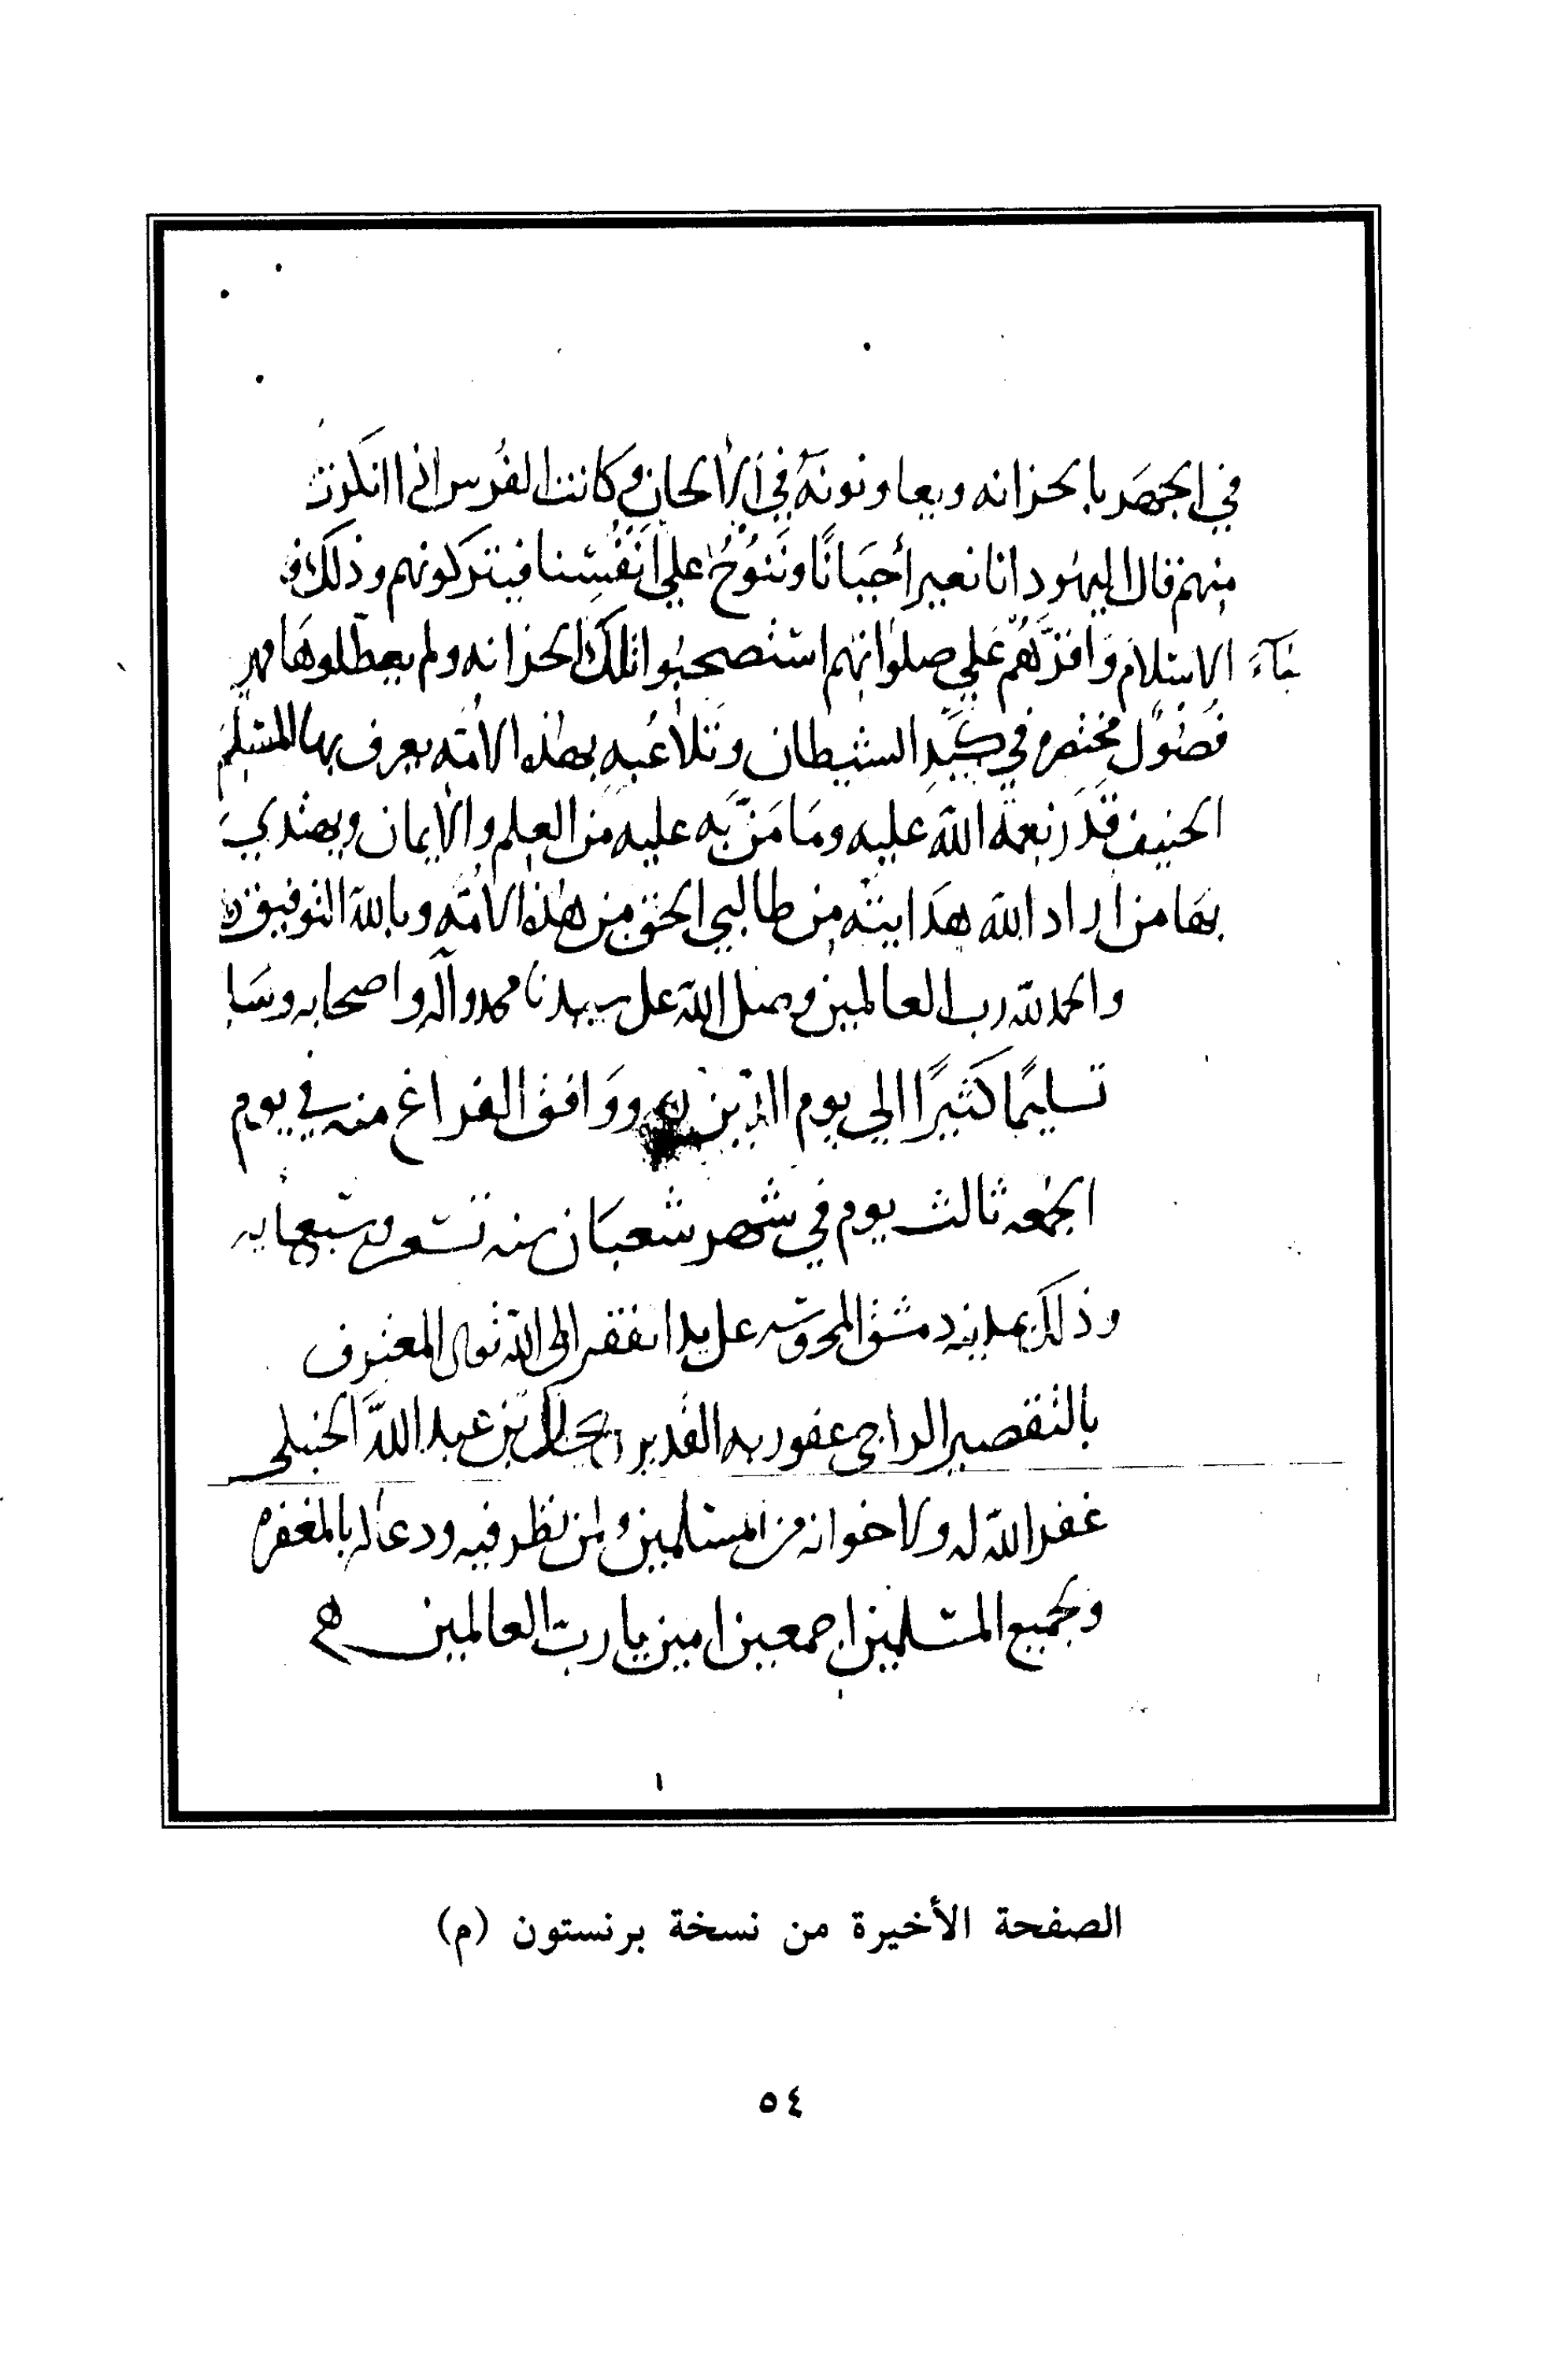 في الجهر بالحزانه ويعاونونه في الالحان وكانت الفرس اذا انكرت
منهم قال اليهود انا نعير أحيانًا وننوح على انفسنا فيتركونهم وذلك
الاسلام واقرهم على صلواتهم استصحبوا تلك الحزانه ولم يعطلوها
فصول مختصره في كيد الشيطان وتلاعبه بهذه الامه يعرف بها المسلم
الحنيف قدر نعمة الله عليه وما من به عليه من العلم والايمان ويهتدي
بها من اراد الله هدايته من طالبي الحق من هذه الامه وبالله التوفيق
والحمد لله رب العالمين وصلى الله على سيدنا محمد وآله واصحابه وسلم
تسليمًا كثيرًا الى يوم الدين ووافق الفراغ منه في يوم
الجمعه ثالث يوم في شهر شعبان سنه وسبعمايه
وذلك بمدينه دمشق المحروسه على يد افقر الى الله تعالى المعترف
بالتقصير الراجي عفو ربه القدير بن عبد الله الحنبلي
غفر الله له ولاخوانه من المسلمين ولمن نظر فيه ودعا له بالمغفره
ولجميع المسلمين اجمعين امين يا رب العالمين
الصفحة الأخيرة من نسخة برنستون (م)
٥٤